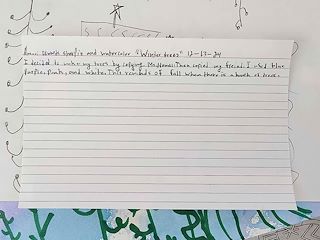 sharpie and watercolor "Winter trees" 12-13-24
I decided to make my trees by copying Ms. Then copied my friend. I used blue
purple, pink, and white. This reminds of fall when there is a bunch of trees.